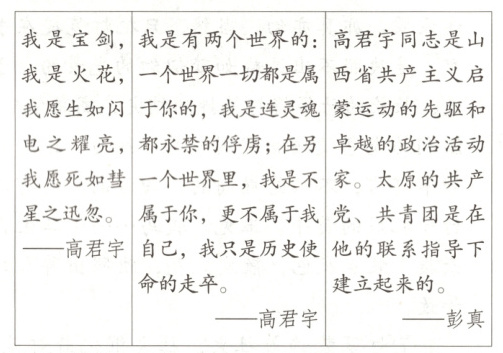 我是宝剑，
我是火花，
我愿生如闪
电之耀亮，
我愿死如彗
星之迅忽。
——高君宇
我是有两个世界的：
一个世界一切都是属
于你的，我是连灵魂
都永禁的俘虏；在另
一个世界里，我是不
属于你，更不属于我
自己，我只是历史使
命的走卒。
——高君宇
高君宇同志是山
西省共产主义启
蒙运动的先驱和
卓越的政治活动
家。太原的共产
党、共青团是在
他的联系指导下
建立起来的。
——彭真